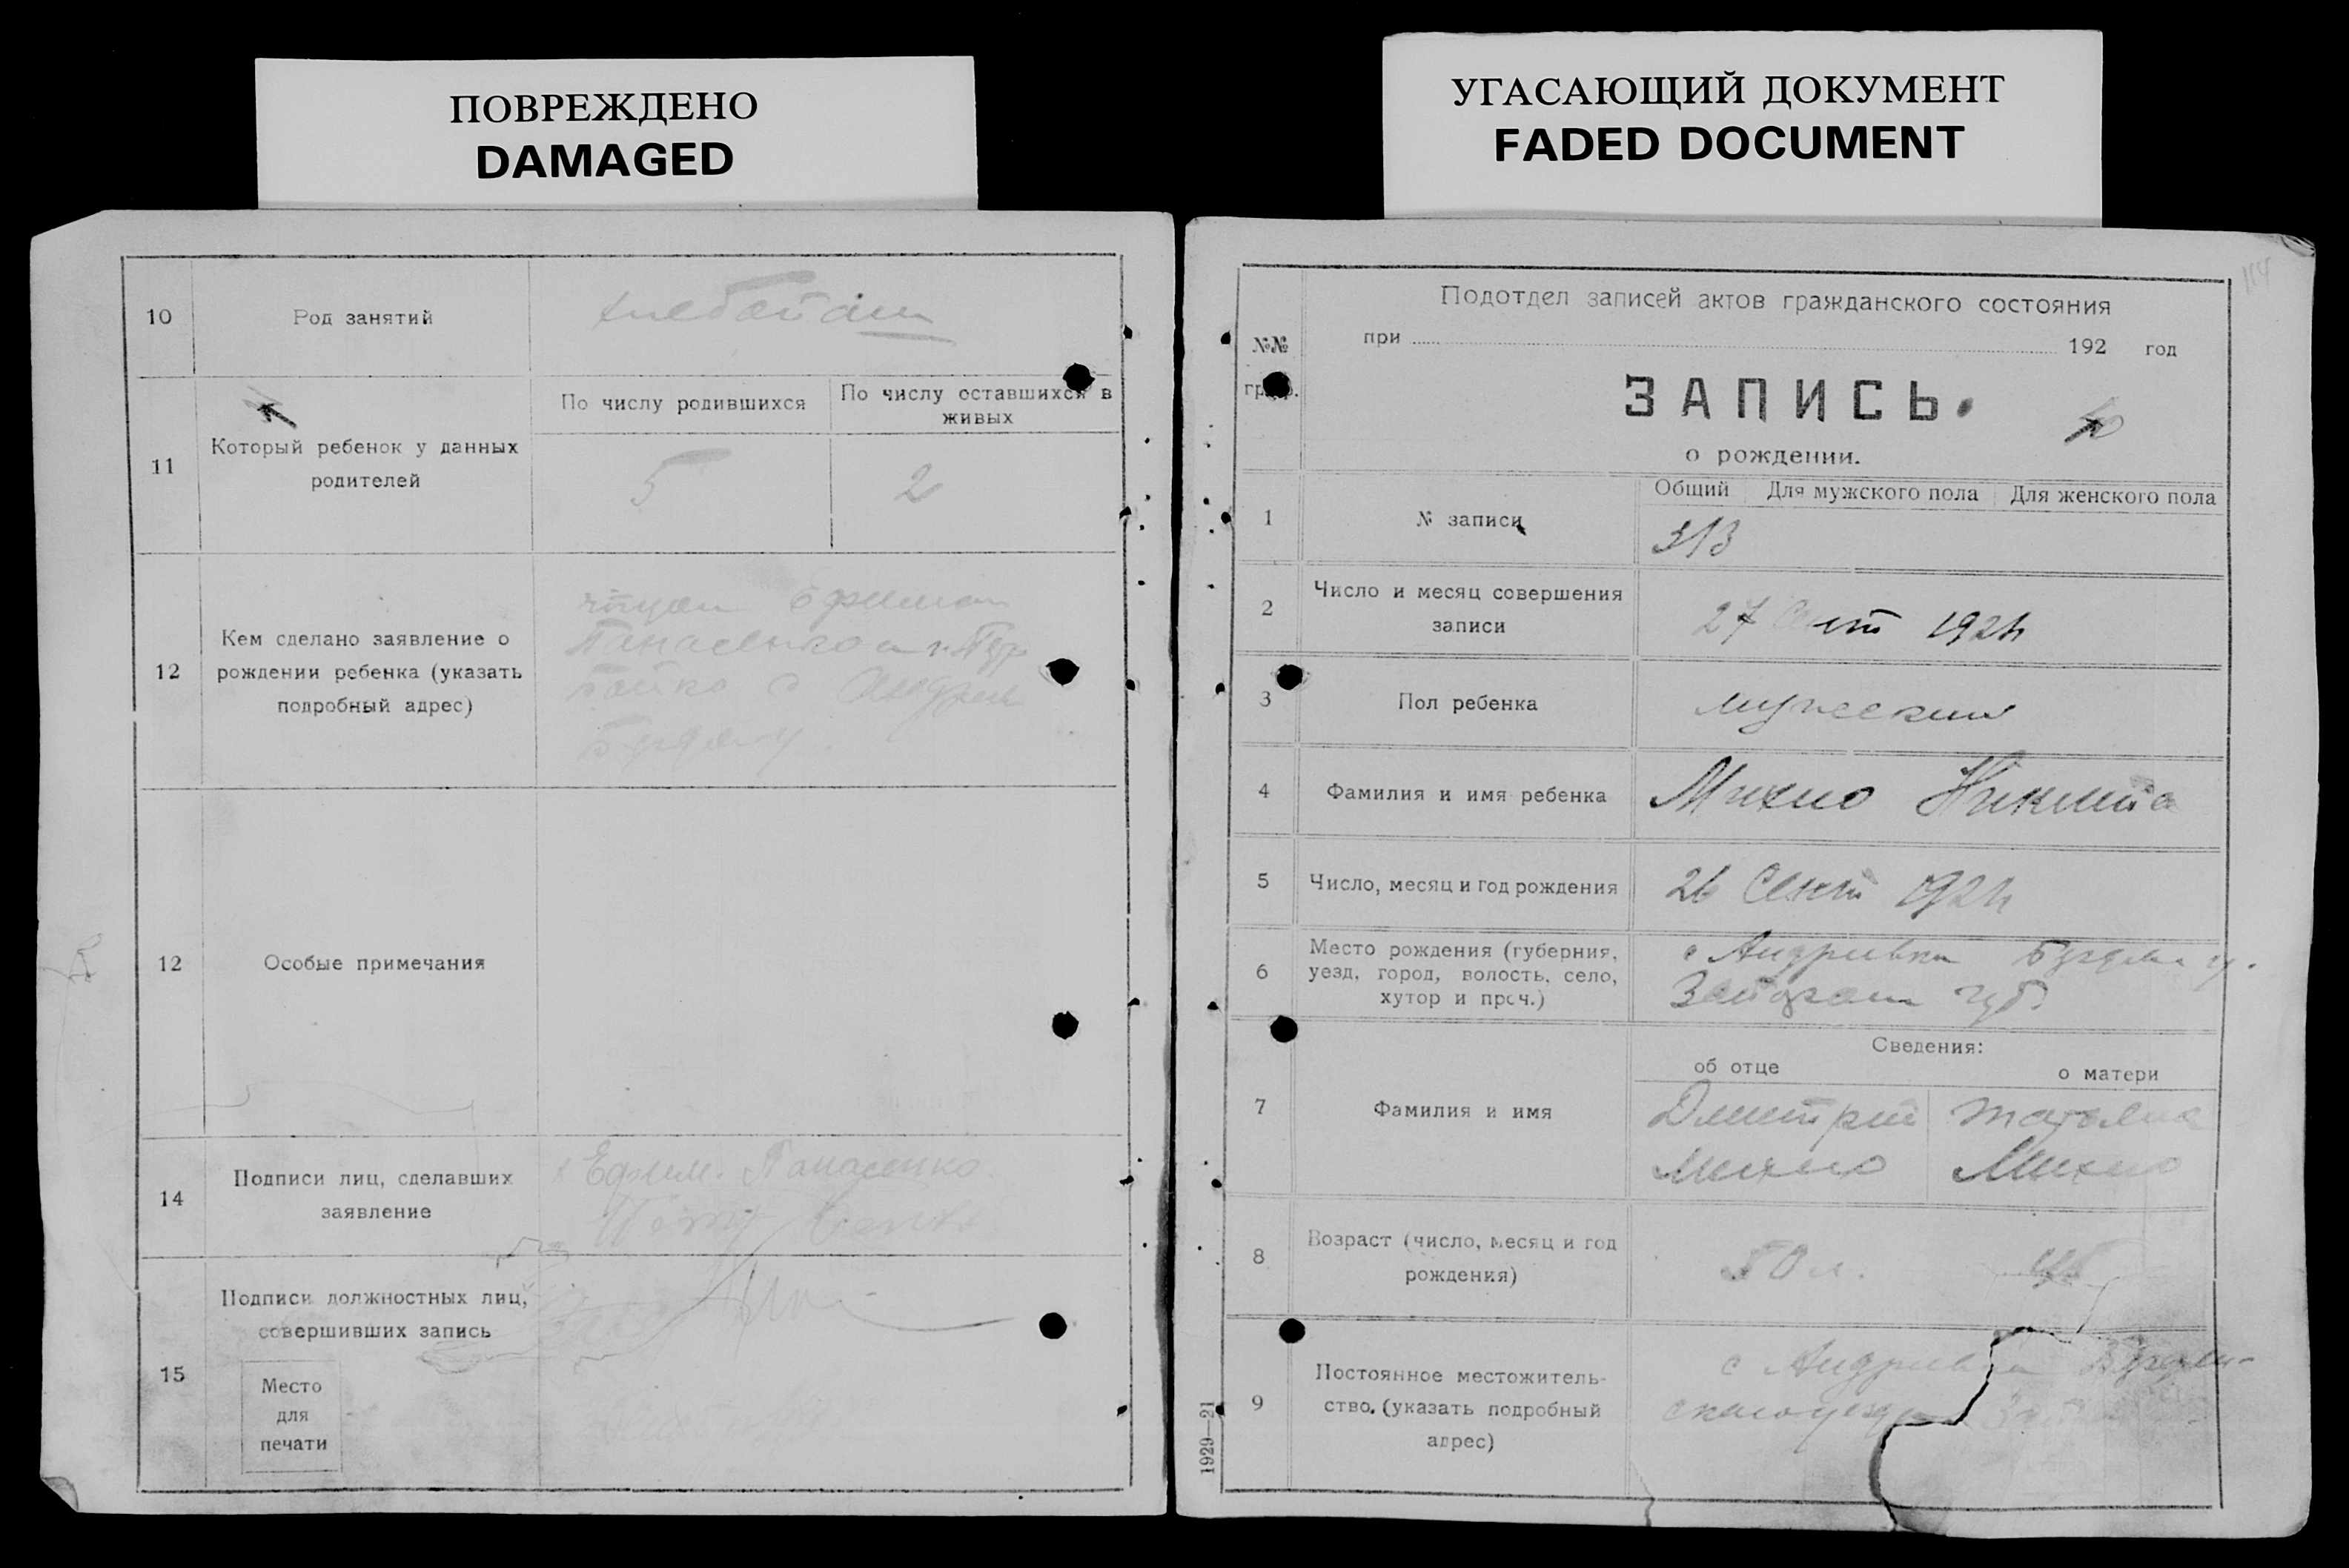 ПОВРЕЖДЕНО
DAMAGED
УГАСАЮЩИЙ ДОКУМЕНТ
FADED DOCUMENT
10
Род занятий
11
Который ребенок у данных
родителей
По числу родившихся
По числу оставшихся в
живых
5
2
12
Кем сделано заявление о
рождении ребенка (указать
подробный адрес)
Панасенко
12
Особые примечания
14
Подписи лиц, сделавших
заявление
Ефим. Панасенко
15
Подписи должностных лиц,
совершивших запись
Место
для
печати
Подотдел записей актов гражданского состояния
№№
при 192 год
ЗАПИСЬ.
о рождении.
1
№ записи
Общий
Для мужского пола
Для женского пола
313
2
Число и месяц совершения
записи
27 Сент 1921
3
Пол ребенка
мужеский
4
Фамилия и имя ребенка
Михно Никита
5
Число, месяц и год рождения
26 Сент 1921
6
Место рождения (губерния,
уезд, город, волость, село,
хутор и проч.)
с Андривка
губ.
Сведения:
об отце
о матери
7
Фамилия и имя
Дмитрий
Михно
Татьяна
Михно
8
Возраст (число, месяц и год
рождения)
50 л.
9
Постоянное местожитель-
ство. (указать подробный
адрес)
1929—21